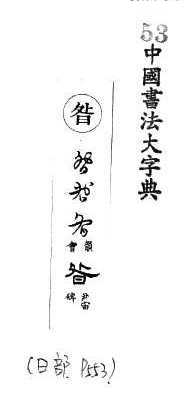 53
中國書法大字典
昝
韻會
昝
尹宙碑
(日部 P553)